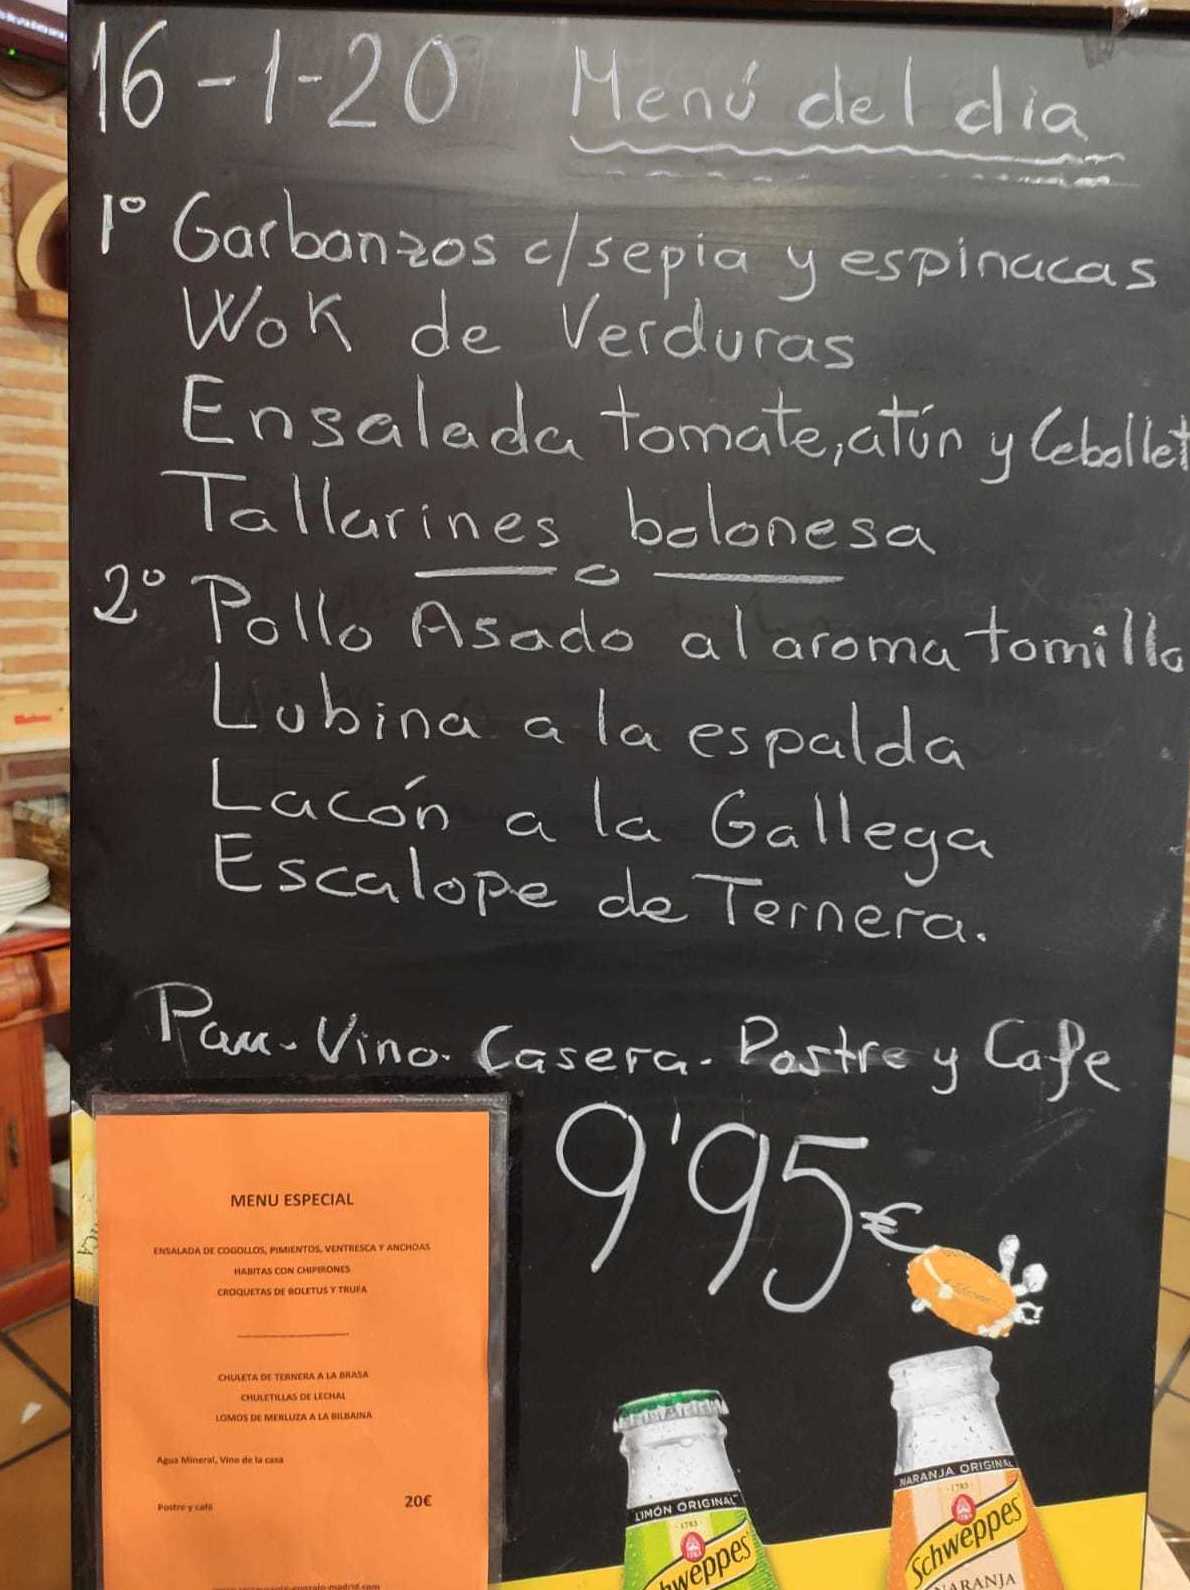 16-1-20 Menú del dia
1º Garbanzos c/sepia y espinacas
Wok de Verduras
Ensalada tomate, atún y Cebollet
Tallarines bolonesa
2º Pollo Asado al aroma tomillo
Lubina a la espalda
Lacón a la Gallega
Escalope de Ternera.
Pan-Vino-Casera-Postre y Cafe
9'95€
MENU ESPECIAL
ENSALADA DE COGOLLOS, PIMIENTOS, VENTRESCA Y ANCHOAS
HABITAS CON CHIPIRONES
CROQUETAS DE BOLETUS Y TRUFA
CHULETA DE TERNERA A LA BRASA
CHULETILLAS DE LECHAL
LOMOS DE MERLUZA A LA BILBAINA
Agua Mineral, Vino de la casa
Postre y café 20€
LIMÓN ORIGINAL
1783
hweppes
NARANJA ORIGINAL
1783
Schweppes
NARANJA